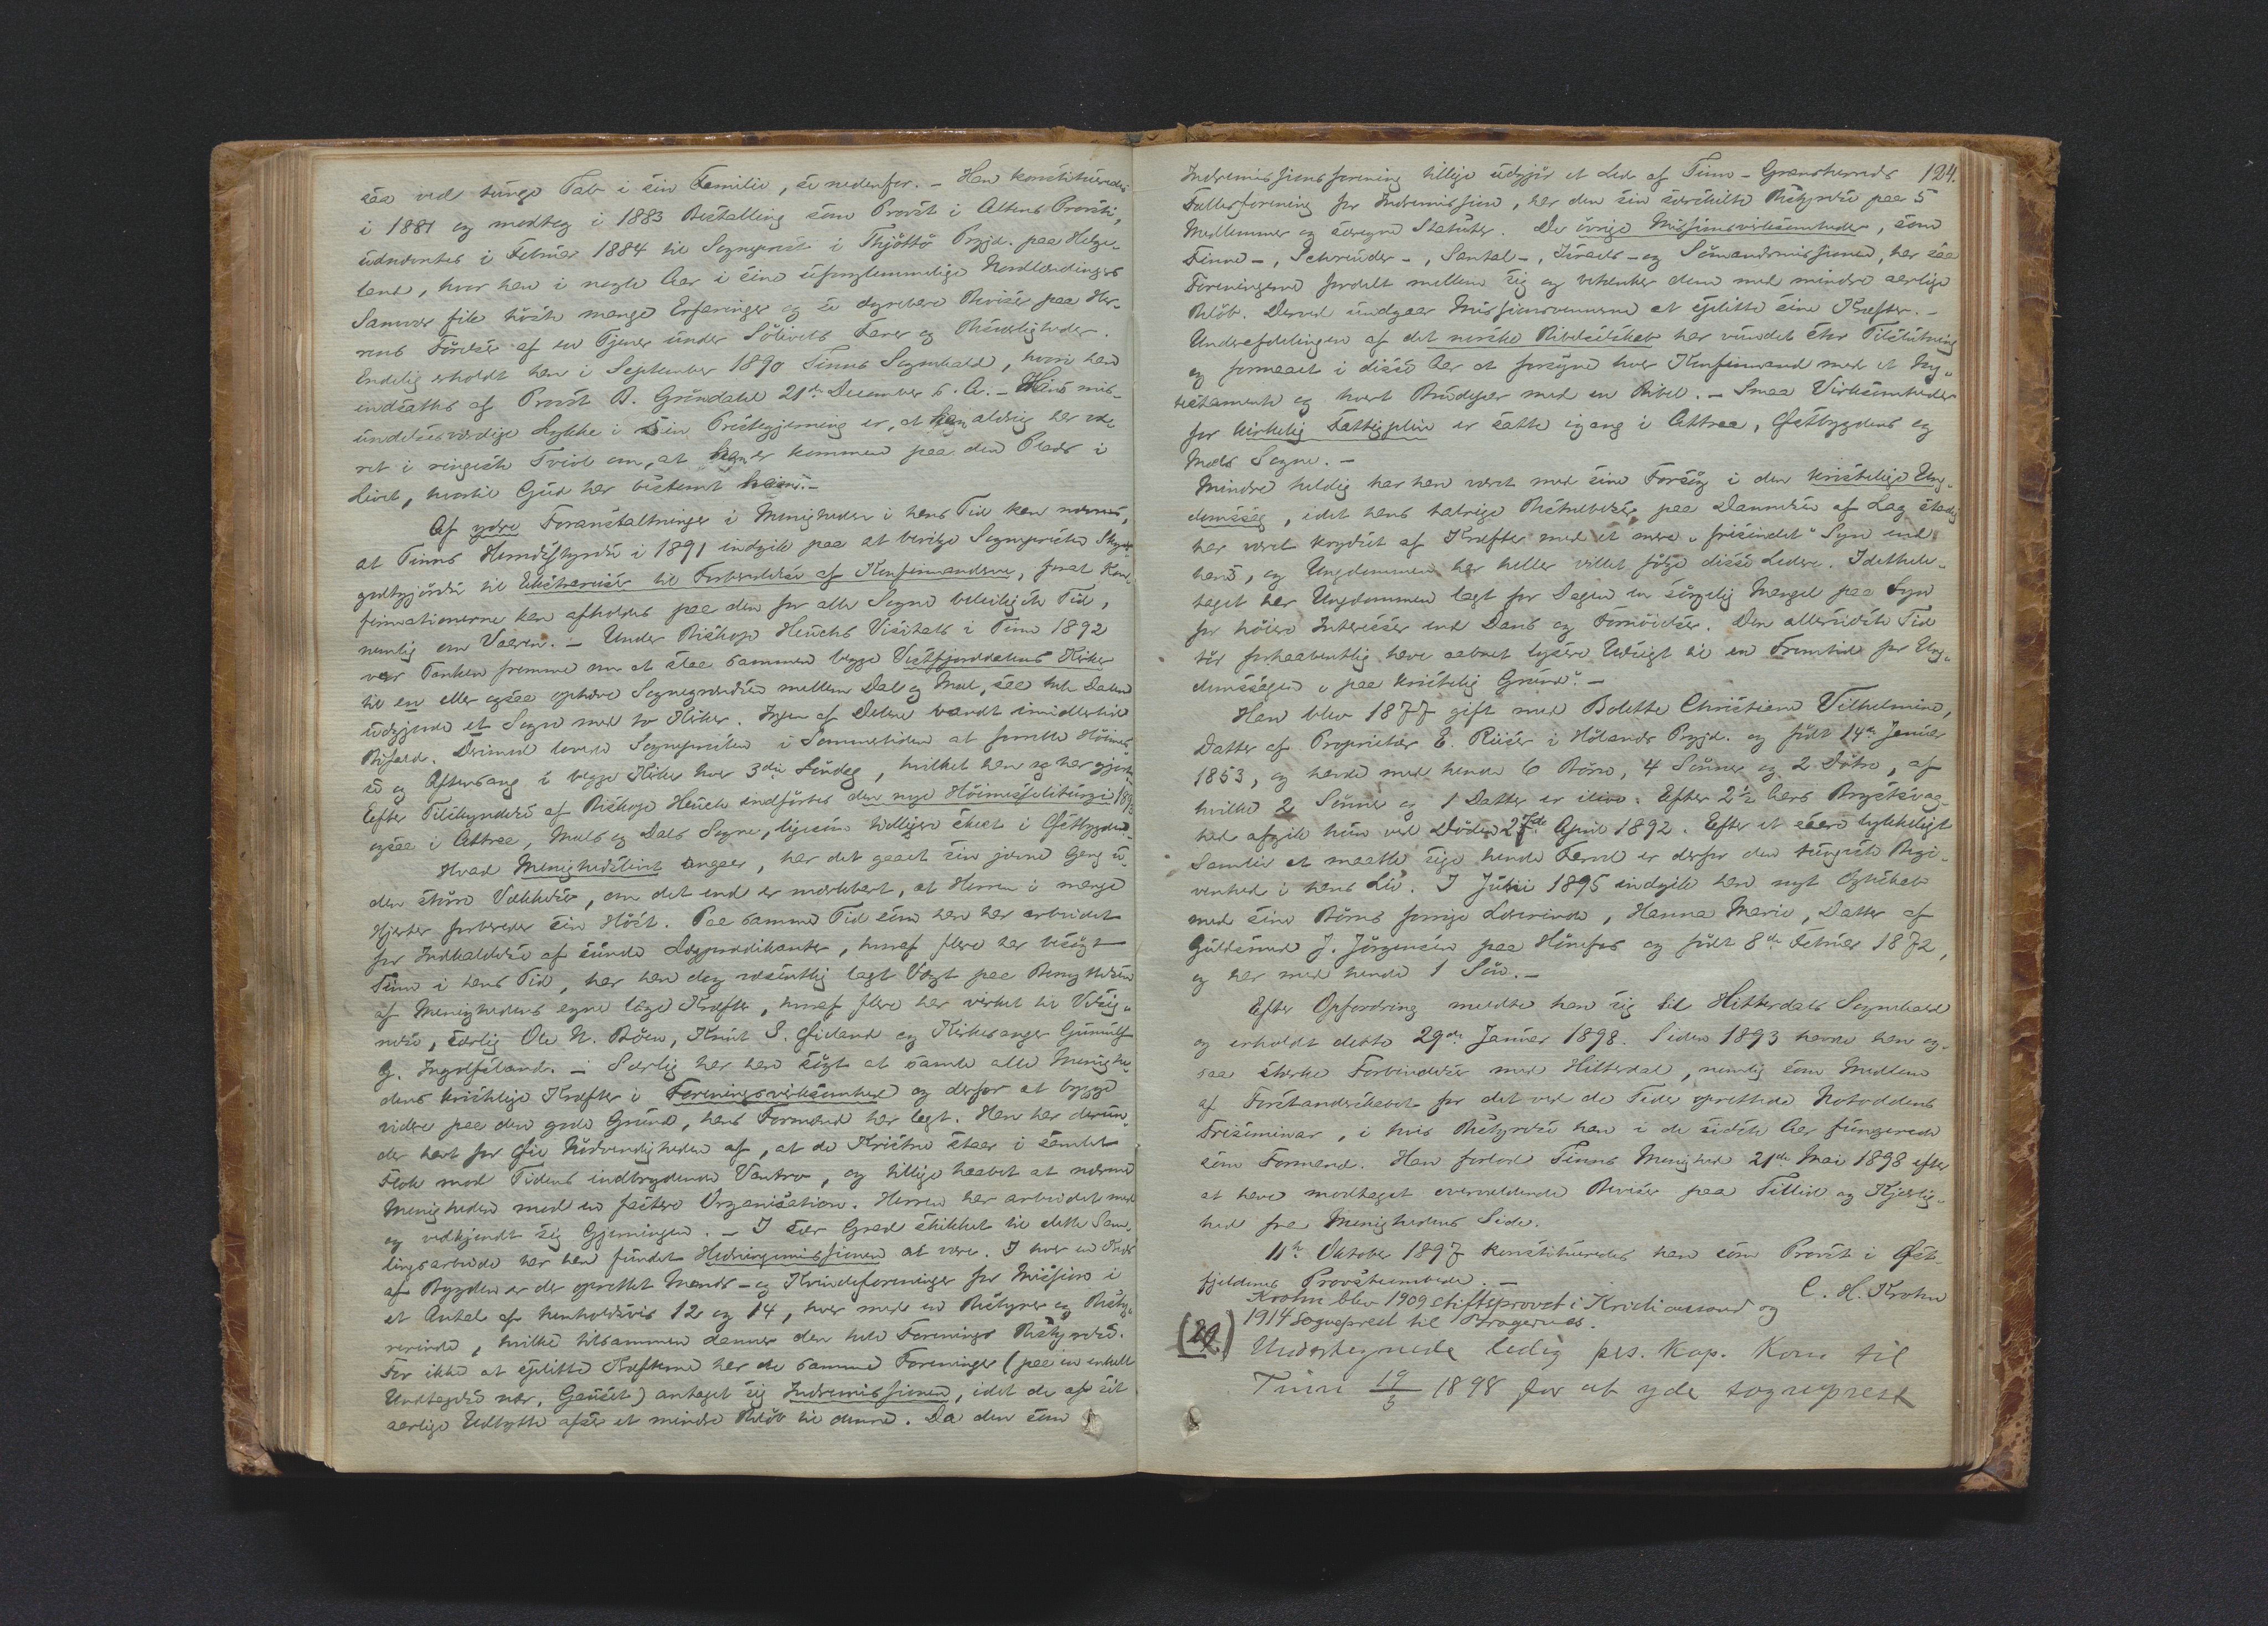 saa ved tunge Tab i sin Familie, se nedenfor. – Han konstitueredes
i 1881 og modtog i 1883 Bestalling som Provst i Altens Provsti,
udnævntes i Februar 1884 til Sogneprest i Thjøttø Prgjd. paa Helge-
land, hvor han i nogle Aar i sine uforglemmelige Nordlændingers
Samvær fik høste mange Erfaringer og se dyrebare Beviser paa Her-
rens Førelse af en Tjener under Sølivets Farer og Besværligheder.
Endelig erholdt han i September 1890 Tinns Sognekald, hvori han
indsattes af Provst B. Grøndahl 21de December s. A. – Hans mis-
undelsesværdige Lykke i sin Prestegjerning er, at han aldrig har væ-
ret i ringeste Tvivl om, at han er kommen paa den Plads i
Livet, hvortil Gud har bestemt ham. –
Af ydre Foranstaltninger i Menigheden i hans Tid kan nævnes,
at Tinns Herredsstyrelse i 1891 indgik paa at bevilge Sognepresten Skyds-
godtgjørelse til Extrareiser til Forberedelse af Konfirmanderne, forat Kon-
firmationerne kan afholdes paa den for alle Sogne beleiligste Tid,
nemlig om Vaaren. – Under Biskop Heuchs Visitats i Tinn 1892
var Tanken fremme om at slaa sammen begge Vestfjorddalens Kirker
til en eller ogsaa ophæve Sognegrændsen mellem Dal og Mæl, saa hele Dalen
udgjorde et Sogn med to Kirker. Ingen af Delene vandt imidlertid
Bifald. Derimod lovede Sognepresten i Sommertiden at forrette Høimes-
se og Aftensang i begge Kirker hver 3die Søndag, hvilket han og har gjort.
Efter Tilskyndelse af Biskop Heuch indførtes den nye Høimesseliturgi 1893
ogsaa i Attraa, Mæls og Dals Sogne, ligesom tidligere skeet i Østbygden.
Hvad Menighedslivet angaar, har det gaaet sin jævne Gang u-
den større Vækkelse, om det end er mærkbart, at Herren i mange
Hjerter forbereder sin Høst. Paa samme Tid som han har arbeidet
for Indkaldelse af sunde Lægprædikanter, hvoraf flere har besøgt
Tinn i hans Tid, har han dog væsentlig lagt Vægt paa Benyttelsen
af Menighedens egne læge Kræfter, hvoraf flere har virket til Velsig-
nelse, særlig Ole N. Bøen, Knut S. Øieland og Kirkesanger Gunnulf
G. Ingolfsland. – Særlig har han søgt at samle alle Menighe-
dens kristelige Kræfter i Foreningsvirksomhed og derfor at bygge
videre paa den gode Grund, hans Formænd har lagt. Han har derun-
der havt for Øie Nødvendigheden af, at de Kristne staar i samlet
Flok mod Tidens indbrydende Vantro, og tillige haabet at nærme
Menigheden mod en fastere Organisation. Herren har arbeidet med
og vedkjendt sig Gjerningen. – I især Grad skikket til dette Sam-
lingsarbeide har han fundet Hedningemissionen at være. I hver en Kreds
af Bygden er der oprettet Mands- og Kvindeforeninger for Mission i
et Antal af henholdsvis 12 og 14, hver med en Bestyrer og Besty-
rerinde, hvilke tilsammen danner den hele Forenings Bestyrelse.
For ikke at splitte Kræfterne har de samme Foreninger (paa en enkelt
Undtagelse nær, Gauset) antaget sig Indremissionen, idet de af sit
aarlige Udbytte afser et mindre Beløb til denne. Da den som
124.
Indremissionsforening tillige udgjør et Led af Tinn-Gransherreds
Fællesforening for Indremission, har den sin særskilte Bestyrelse paa 5
Medlemmer og særegne Statuter. De øvrige Missionsvirksomheder, som
Finne-, Schreuder-, Santal-, Israels- og Sømandsmissionen, har saa
Foreningerne fordelt mellem sig og betænker dem med mindre aarlige
Beløb. Derved undgaar Missionsvennerne at splitte sine Kræfter. –
Underafdelingen af det norske Bibelselskab har vundet stor Tilslutning
og formaaet i disse Aar at forsyne hver Konfirmand med et Ny-
testamente og hvert Brudepar med en Bibel. – Smaa Virksomheder
for kirkelig Fattigpleie er satte igang i Attraa, Østbygdens og
Mæls Sogne. –
Mindre heldig har han været med sine Forsøg i den kristelige Ung-
domssag, idet hans talrige Bestræbelser paa Dannelsen af Lag stadig
har været krydset af Kræfter med et mere „frisindet“ Syn end
hans, og Ungdommen har heller villet følge disse Ledere. Idethele-
taget har Ungdommen lagt for Dagen en sørgelig Mangel paa Syn
for høiere Interesser end Dans og Fornøielser. Den allersidste Tid
tør forhaabentlig have aabnet lysere Udsigt til en Fremtid for Ung-
domssagen „paa kristelig Grund“. –
Han blev 1877 gift med Bolette Christiane Vilhelmine,
Datter af Proprietær E. Riiser i Hølands Prgjd. og født 14de Januar
1853, og havde med hende 6 Børn, 4 Sønner og 2 Døtre, af
hvilke 2 Sønner og 1 Datter er ilive. Efter 2½ Aars Brystsvag-
hed afgik hun ved Døden 27de April 1892. Efter et saare lykkeligt
Samliv at maatte sige hende Farvel er derfor den tungeste Begi-
venhed i hans Liv. I Juli 1895 indgik han nyt Ægteskab
med sine Børns forrige Lærerinde, Hanna Marie, Datter af
Guldsmed J. Jørgensen paa Hønefos og født 8de Februar 1872,
og har med hende 1 Søn. –
Efter Opfordring meldte han sig til Hitterdals Sognekald
og erholdt dette 29de Januar 1898. Siden 1893 havde han og-
saa stærke Forbindelser med Hitterdal, nemlig som Medlem
af Forstanderskabet for det ved de Tider oprettede Notoddens
Friseminar, i hvis Bestyrelse han i de sidste Aar fungerede
som Formand. Han forlod Tinns Menighed 21de Mai 1898 efter
at have modtaget overvældende Beviser paa Tillid og Kjærlig-
hed fra Menighedens Side.
11te Oktober 1897 konstitueredes han som Provst i Øst-
fjeldenes Provsteembede. –
C. H. Krohn
Krohn blev 1909 stiftsprovst i Kristianssand og
1914 sogneprest til Bragernes.
(29.) Undertegnede ledig pers. Kap. kom til
Tinn 19/5 1898 for at yde sogneprest